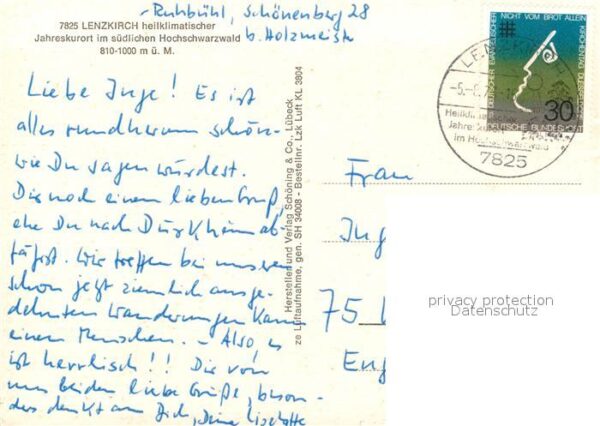 - Ruhbühl, Schönenberg 28
b. Holzmeister
7825 LENZKIRCH heilklimatischer
Jahreskurort im südlichen Hochschwarzwald
810-1000 m ü. M.
Liebe Inge! Es ist
alles rundherum schön -
wie Du sagen würdest.
Dir noch einen lieben Gruß,
ehe Du nach Dürkheim ab-
fährst. Wir treffen bei unseren
schon jetzt ziemlich ausge-
dehnten Wanderungen kaum
einen Menschen. - Also, es
ist herrlich!! Dir von
uns beiden liebe Grüße, beson-
ders denkt an Dich, Deine Liselotte
Herstellung und Verlag Schöning & Co., Lübeck
ze Luftaufnahme, gen. SH 34008 - Bestellnr. Lzk Luft KL 3804
DEUTSCHER EVANGELISCHER KIRCHENTAG DÜSSELDORF
NICHT VOM BROT ALLEIN
30
DEUTSCHE BUNDESPOST
LENZKIRCH
-5.-6.7
Heilklimatischer
Jahreskurort
im Hochschwarzwald
7825
Frau
Ing
75
Eng
privacy protection
Datenschutz